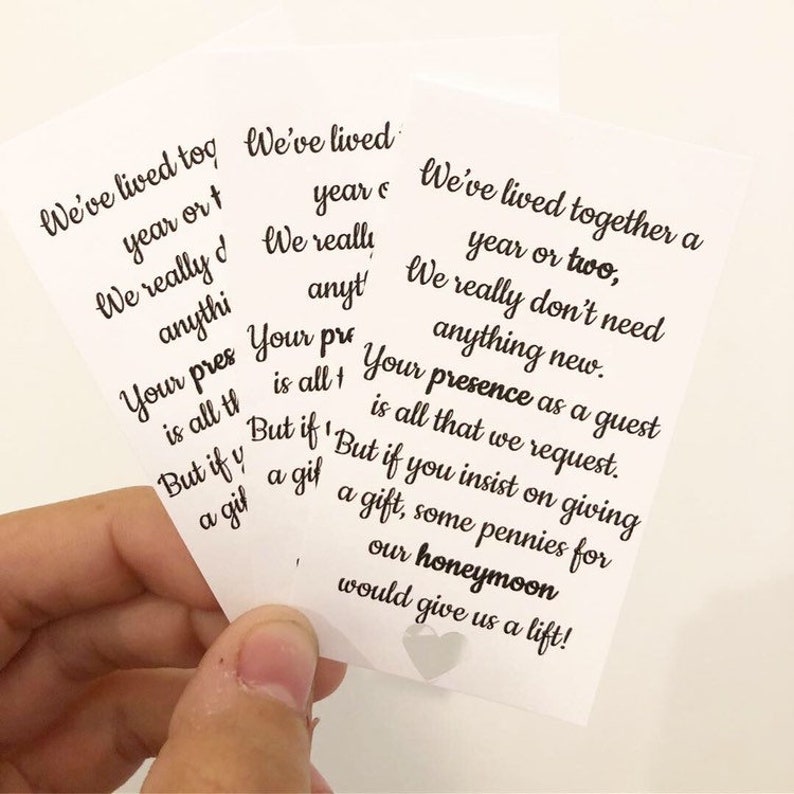 We've lived tog
year or t
We really d
anythi
Your pres
is all th
But if y
a gif
We've lived t
year o
We really
anyt
Your pre
is all t
But if
a gif
We've lived together a
year or two,
We really don't need
anything new.
Your presence as a guest
is all that we request.
But if you insist on giving
a gift, some pennies for
our honeymoon
would give us a lift!